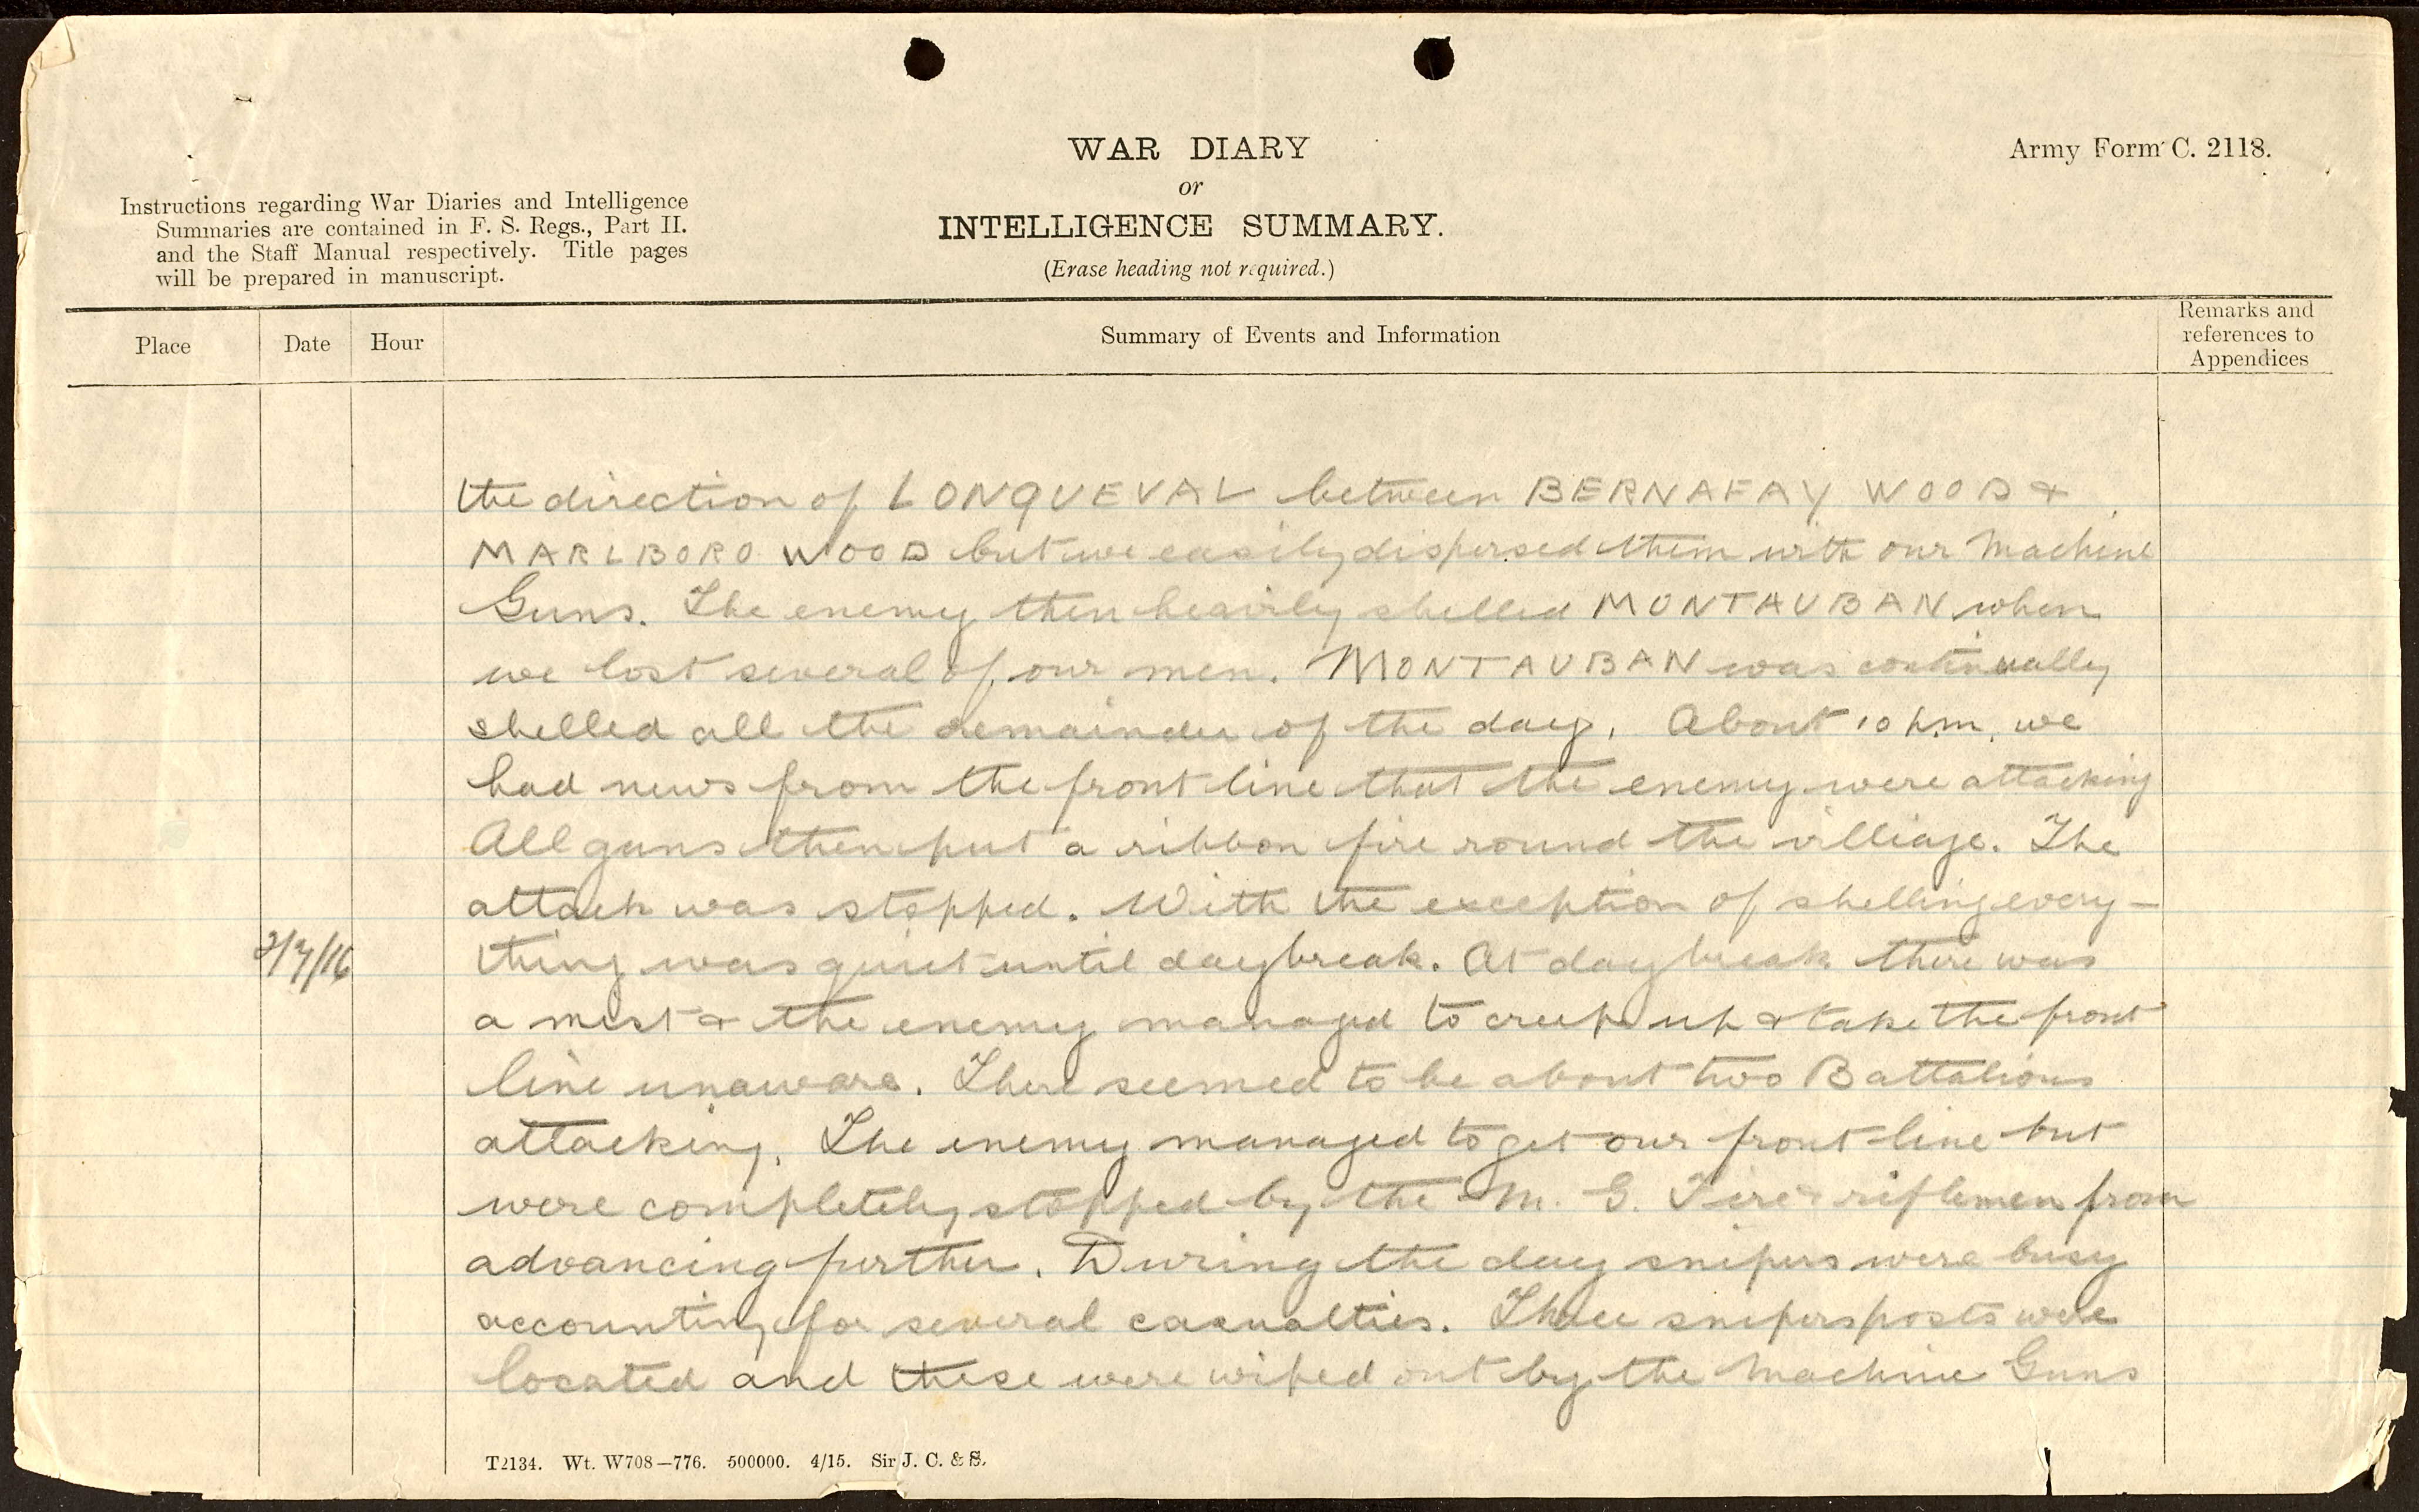 WAR DIARY
or
INTELLIGENCE SUMMARY.
(Erase heading not required.)
Army Form C. 2118.
Instructions regarding War Diaries and Intelligence
Summaries are contained in F. S. Regs., Part II.
and the Staff Manual respectively. Title pages
will be prepared in manuscript.
Place
Date
Hour
Summary of Events and Information
Remarks and
references to
Appendices
the direction of LONQUEVAL between BERNAFAY WOOD &
MARLBORO WOOD but we easily dispersed them with our Machine
Guns. The enemy then heavily shelled MONTAUBAN when
we lost several of our men. MONTAUBAN was continually
shelled all the remainder of the day. About 10 p.m. we
had news from the front line that the enemy were attacking
All guns then put a ribbon fire round the villiage. The
attack was stopped. With the exception of shelling every-
2/7/16 thing was quiet until daybreak. At daybreak there was
a mist & the enemy managed to creep up & take the front
line unaware. There seemed to be about two Battalions
attacking. The enemy managed to get our front line but
were completely stopped by the M. G. Fire & riflemen from
advancing further. During the day snipers were busy
accounting for several casualties. Three snipers posts were
located and these were wiped out by the Machine Guns
T2134. Wt. W708—776. 500000. 4/15. Sir J. C. & S.